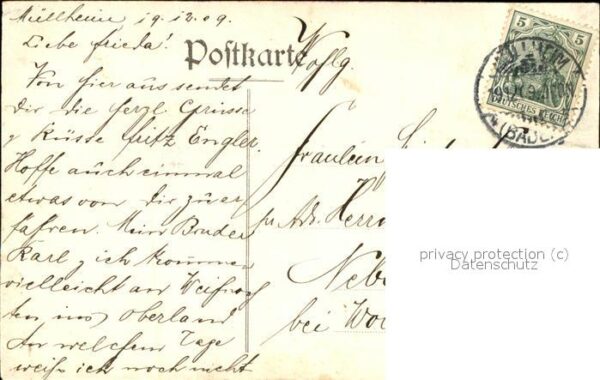 Müllheim 19.12.09.
Liebe Frieda!
Postkarte
Von hier aus sendet
Dir die herzl. Grüsse
& Küsse Fritz Engler.
Hoffe auch einmal
etwas von Dir zu er
fahren. Mein Bruder
Karl & ich kommen
vielleicht an Weihnach
ten ins Oberland
An welchem Tage
weiß ich noch nicht
Wohlg.
Fräulein
pr. Adr. Herrn
bei
5 5
MÜLLHEIM
DEUTSCHES REICH
(BADEN)
privacy protection (c)
Datenschutz